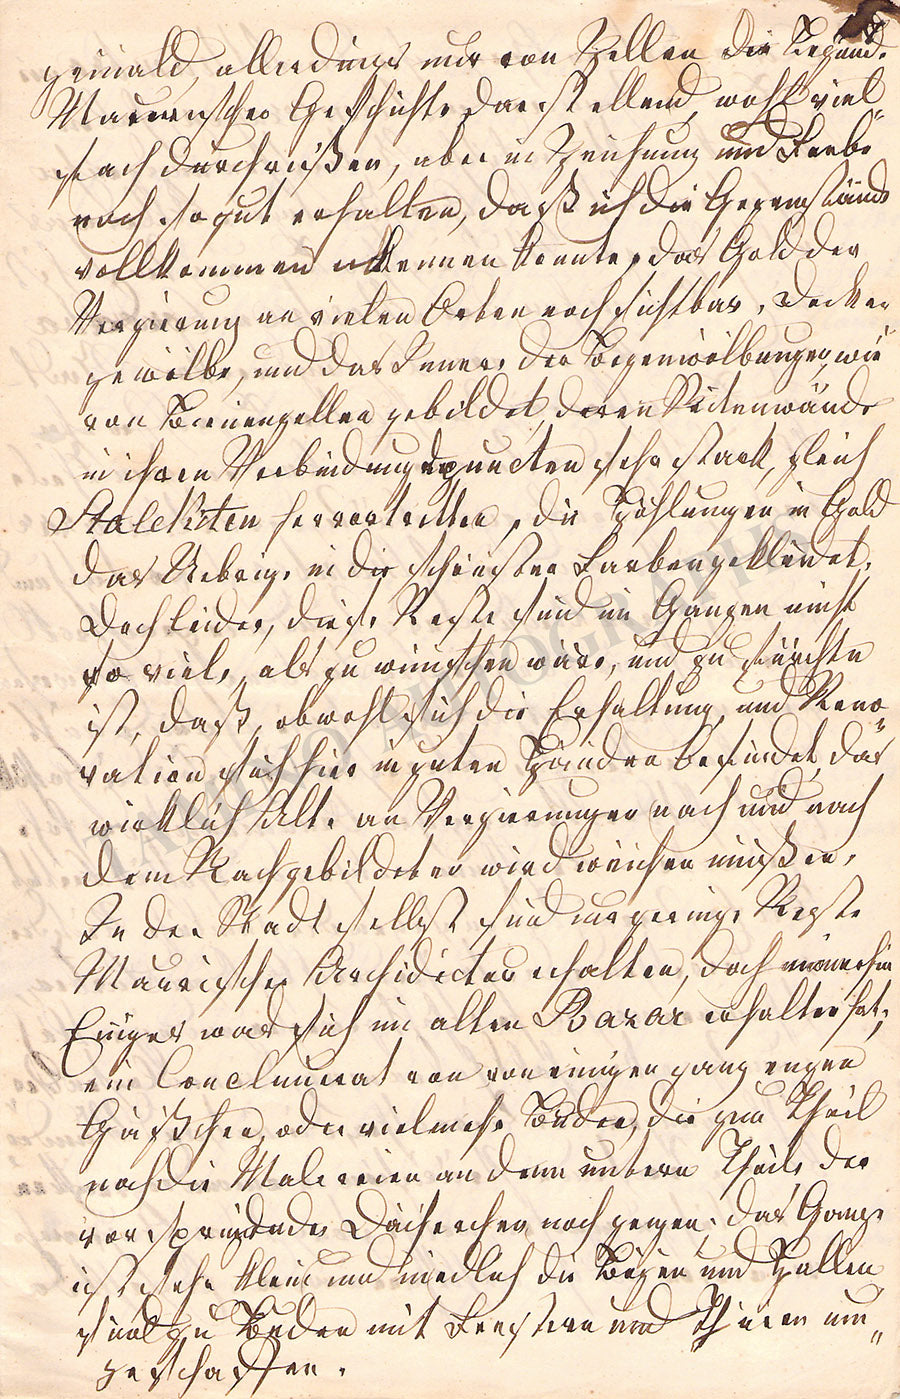 gemald, allerdings nur von Zellen die Legend.
Maurischer Geschichte darstellend, wohl viel
fach durchrißen, aber in Zeichnung und Farbe
noch so gut erhalten, daß ich die Gegenstände
vollkommen erkennen konnte, das Gold der
Verzierung an vielen Orten noch sichtbar, Decken
gewölbe, und das Innere der Bogenwölbungen, wie
von Bienenzellen gebildet, deren Seitenwände
in ihren Verbindungspuncten sehr stark, gleich
Stalekiten hervortretten, die Höhlungen in Gold
das Uebrige in die schönsten Farben gekleidet.
Doch leider, diese Reste sind im Ganzen nicht
so viel, als zu wünschen wäre, und zu fürchten
ist, daß, obwohl sich die Erhaltung, und Reno
vation sich hier in guten Händen befindet, das
wirklich Alte an Verzierungen nach und nach
dem Nachgebildeten wird weichen müßen.
In der Stadt selbst sind nur geringe Reste
Maurischer Archidectur erhalten, doch immerhin
Einiges was sich im alten Bazar erhalten hat;
ein Conclumerat von von einigen ganz engen
Gäßchen, oder vielmehr Buden, die zum Theil
noch die Malereien an dem untern Theile der
vorspringenden Dächerchen noch zeigen; das Ganze
ist sehr klein und niedlich die Bögen und Hallen
sind zu Buden mit Fenstern und Thüren um"
geschaffen.